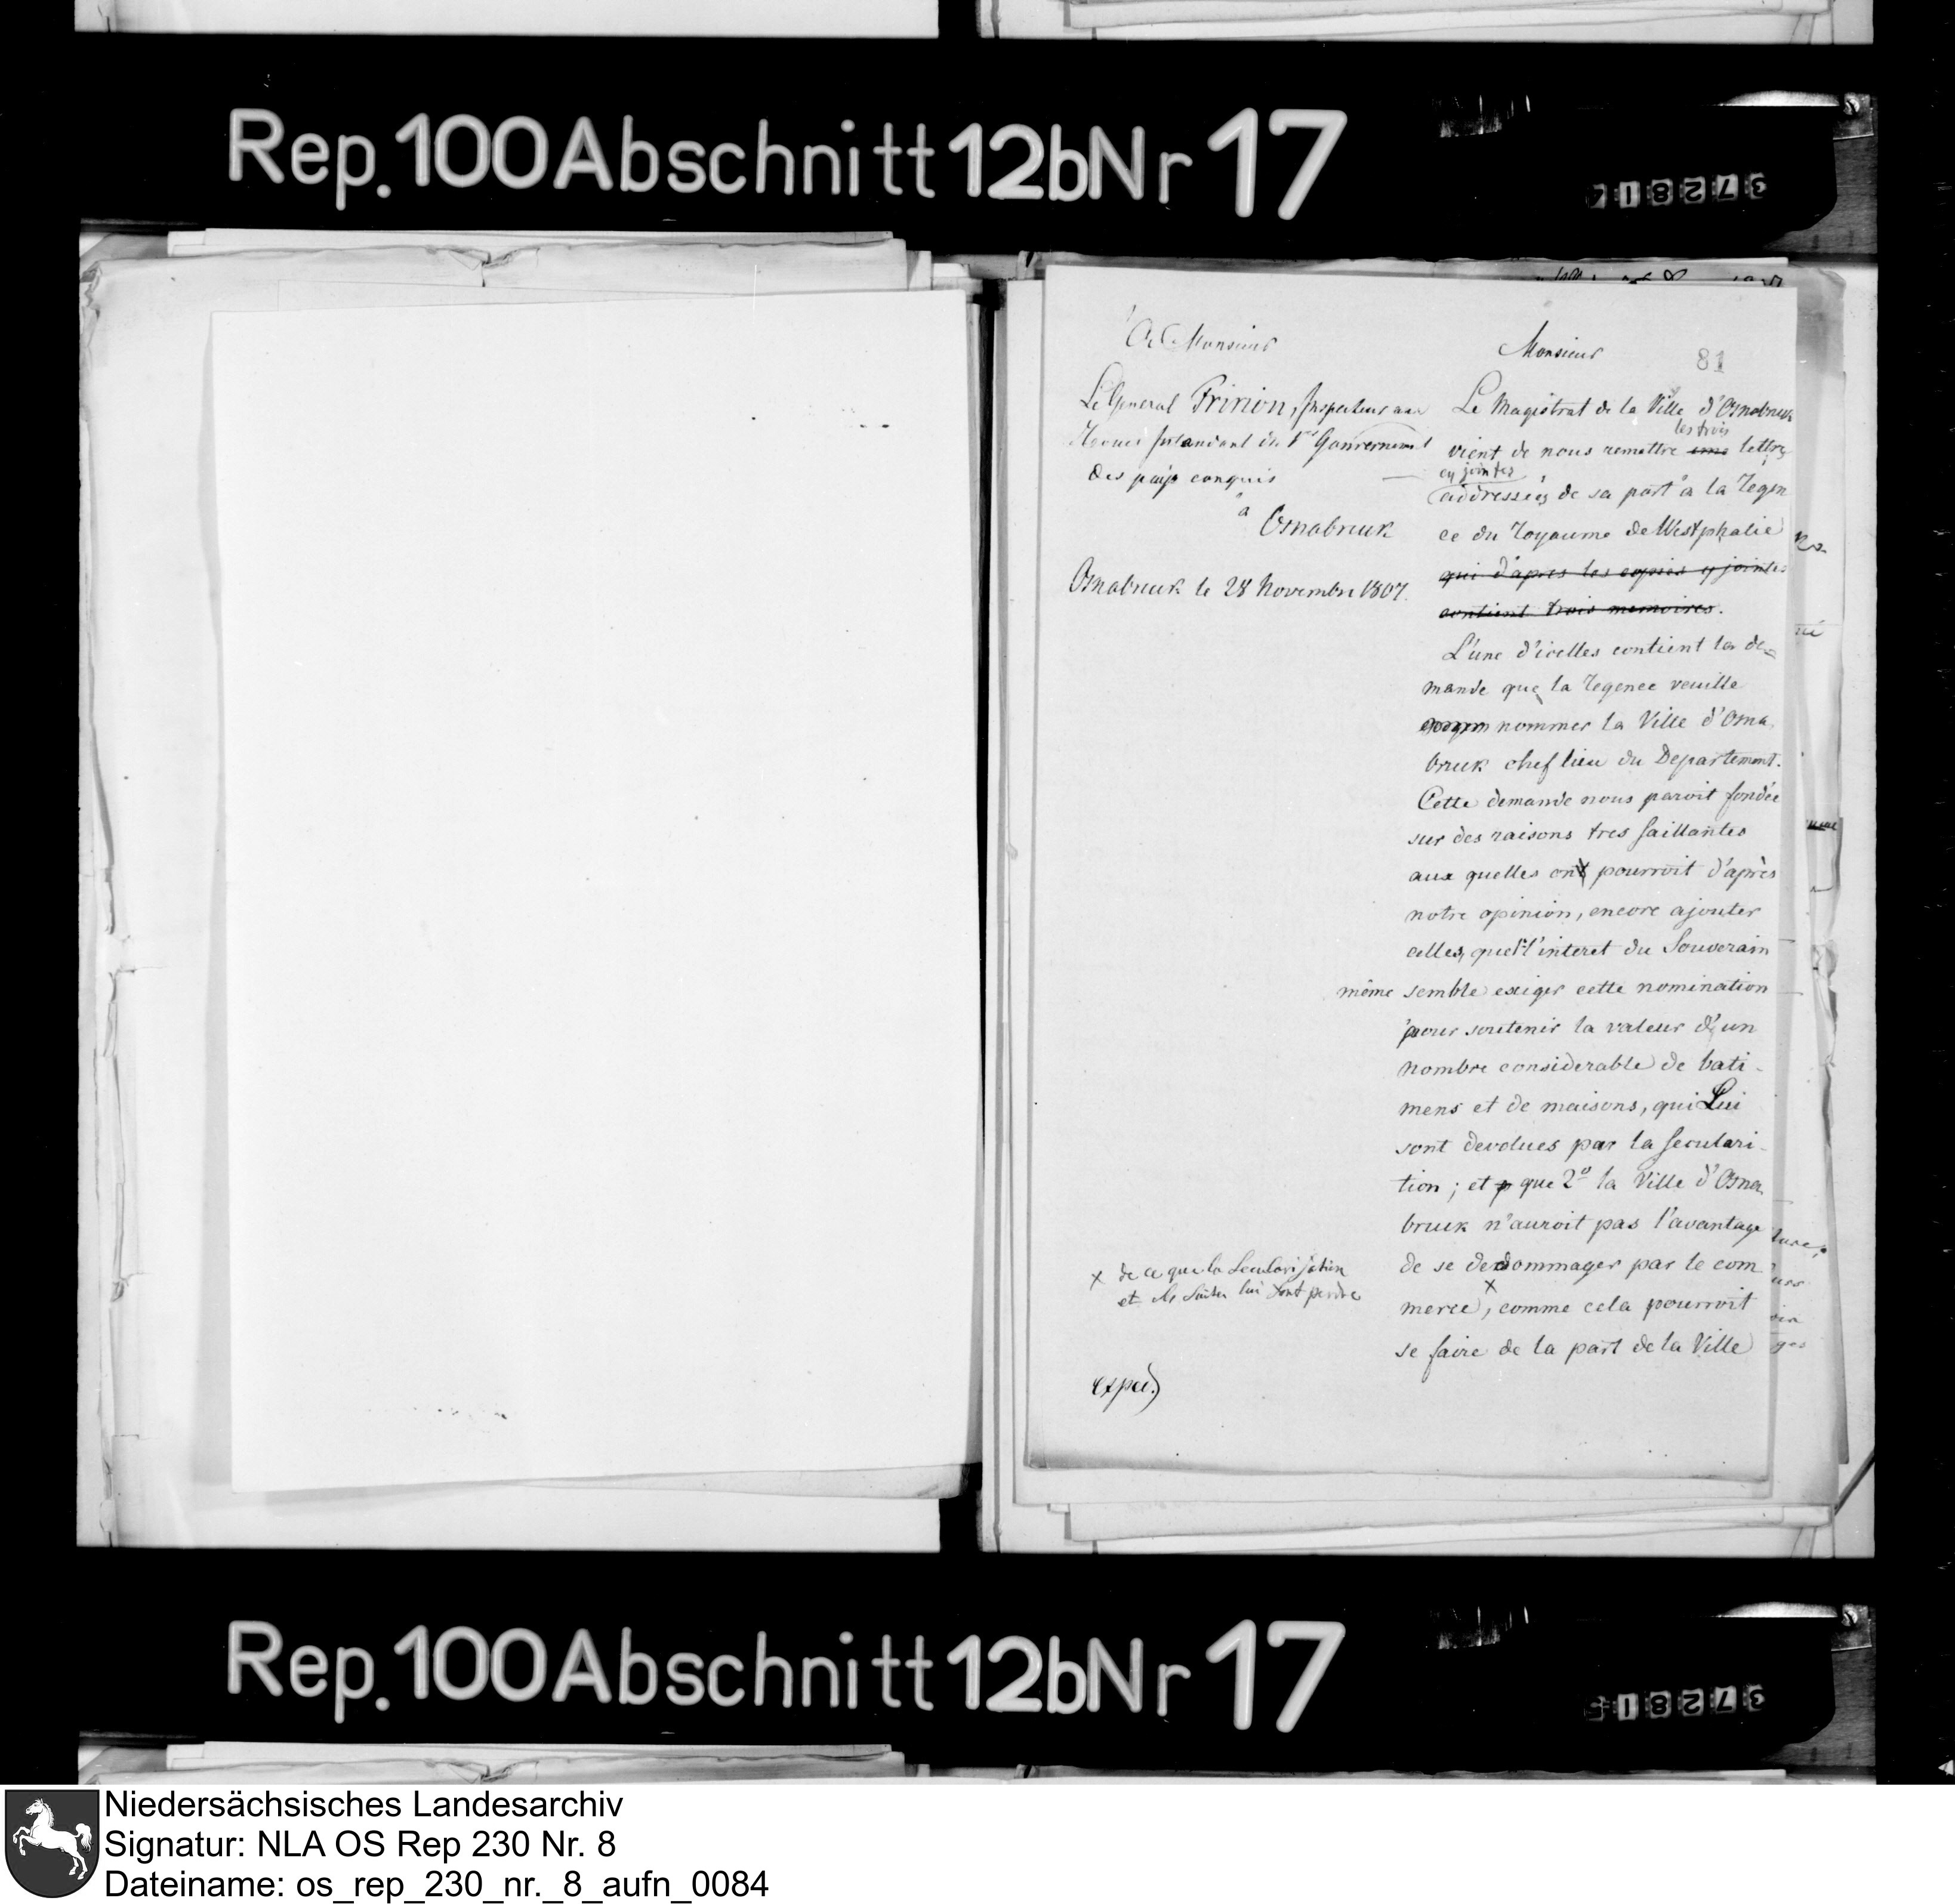 Rep. 100 Abschnitt 12b Nr 17
37281
A Monsieur
Le General Frinion, Inspecteur aux
Revues Intendant du 1er Gouvernement
des païs conquis
à
Osnabruk
Osnabruk le 28 Novembre 1807.
Monsieur
81
Le Magistrat de la Ville d'Osnabruk
les trois
vient de nous remettre une lettres
cy jointes
addressées de sa part à la Regen
ce du Royaume de Westphalie
qui d'apres les copies cy jointes
contient trois memoires.
L'une d'icelles contient la de=
mande que la Regence veuille
nommer la Ville d'Osna
bruk chef lieu du Departement.
Cette demande nous paroit fondée
sur des raisons tres saillantes
aux quelles on pourroit d'après
notre opinion, encore ajouter
celles, que 1º l'interet du Souverain
même semble exiger cette nomination
pour soutenir la valeur d'un
nombre considerable de bati-
mens et de maisons, qui Lui
sont devolues par la seculari-
tion; et p que 2º la Ville d'Osna
bruk n'auroit pas l'avantage
de se dedommager par le com
merce x, comme cela pourroit
se faire de la part de la Ville
x de ce que la Secularisation
et les Suites lui font perdre
exped.
Rep. 100 Abschnitt 12b Nr 17
37281
Niedersächsisches Landesarchiv
Signatur: NLA OS Rep 230 Nr. 8
Dateiname: os_rep_230_nr._8_aufn_0084